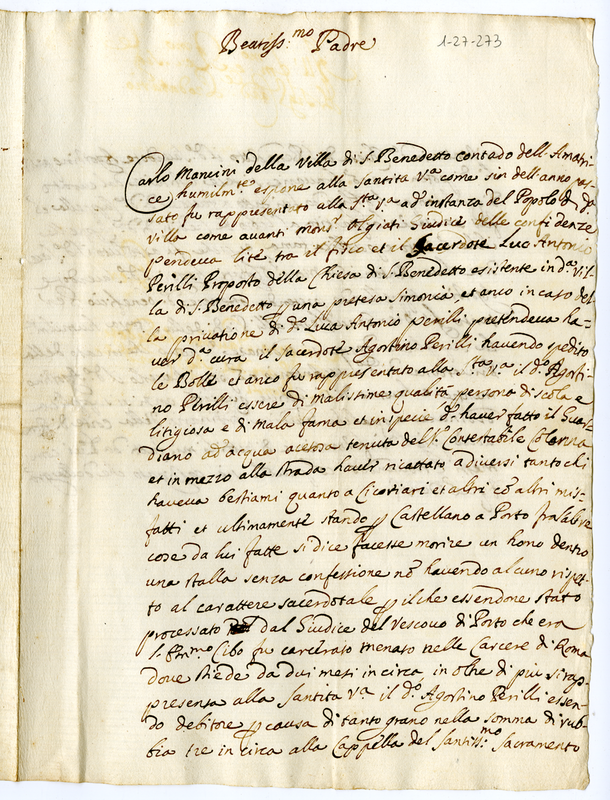 Beatiss:mo Padre
1-27-273
Carlo Mancini della Villa di S. Benedetto contado dell'Amatri=
ce humilmte espone alla santita Va come sin dell'anno pas=
sato fu rappresentato alla Sta Va ad instanza del Popolo di da
Villa come avanti monsr Olgiati Giudice delle confidenze
pendeva lite tra il fisco et il Sacerdote Luc Antonio
Perilli Proposto della Chiesa di S. Benedetto esistente in da Vil=
la di S. Benedetto p una pretesa simonia, et anco in caso del
la privatione di do Luca Antonio perilli pretendeva ha=
ver da cura il sacerdote Agostino Perilli havendo spedito
le Bolle et anco fu rappresentato alla Sta Va il do Agosti=
no Perilli essere di malissime qualità persona di scola e
litigiosa e di mala fama et in specie do haver fatto il Guar=
diano ad acqua acetosa tenuta del Sr Contestabile Colonna
et in mezzo alla strada haver ricattato a diversi tanto chi
haveva bestiami quanto a Cicoriari et altri co altri mis=
fatti et ultimamente stando p Castellano a Porto fra l'altre
cose da lui fatte si dice facesse morire un homo dentro
una stalla senza confessione no havendo alcuno rispet=
to al carattere sacerdotale p il che essendone stato
processato dal Giudice del Vescovo di Porto che era
l. Emmo Cibo fu carcerato menato nelle Carcere di Roma
dove risiede da dui mesi in circa, in oltre di più si rap=
presenta alla Santita Va il do Agostino Perilli essen=
do debitore p causa di tanto grano nella somma di rub=
bia tre in circa alla Cappella del Santiss:mo Sacramento